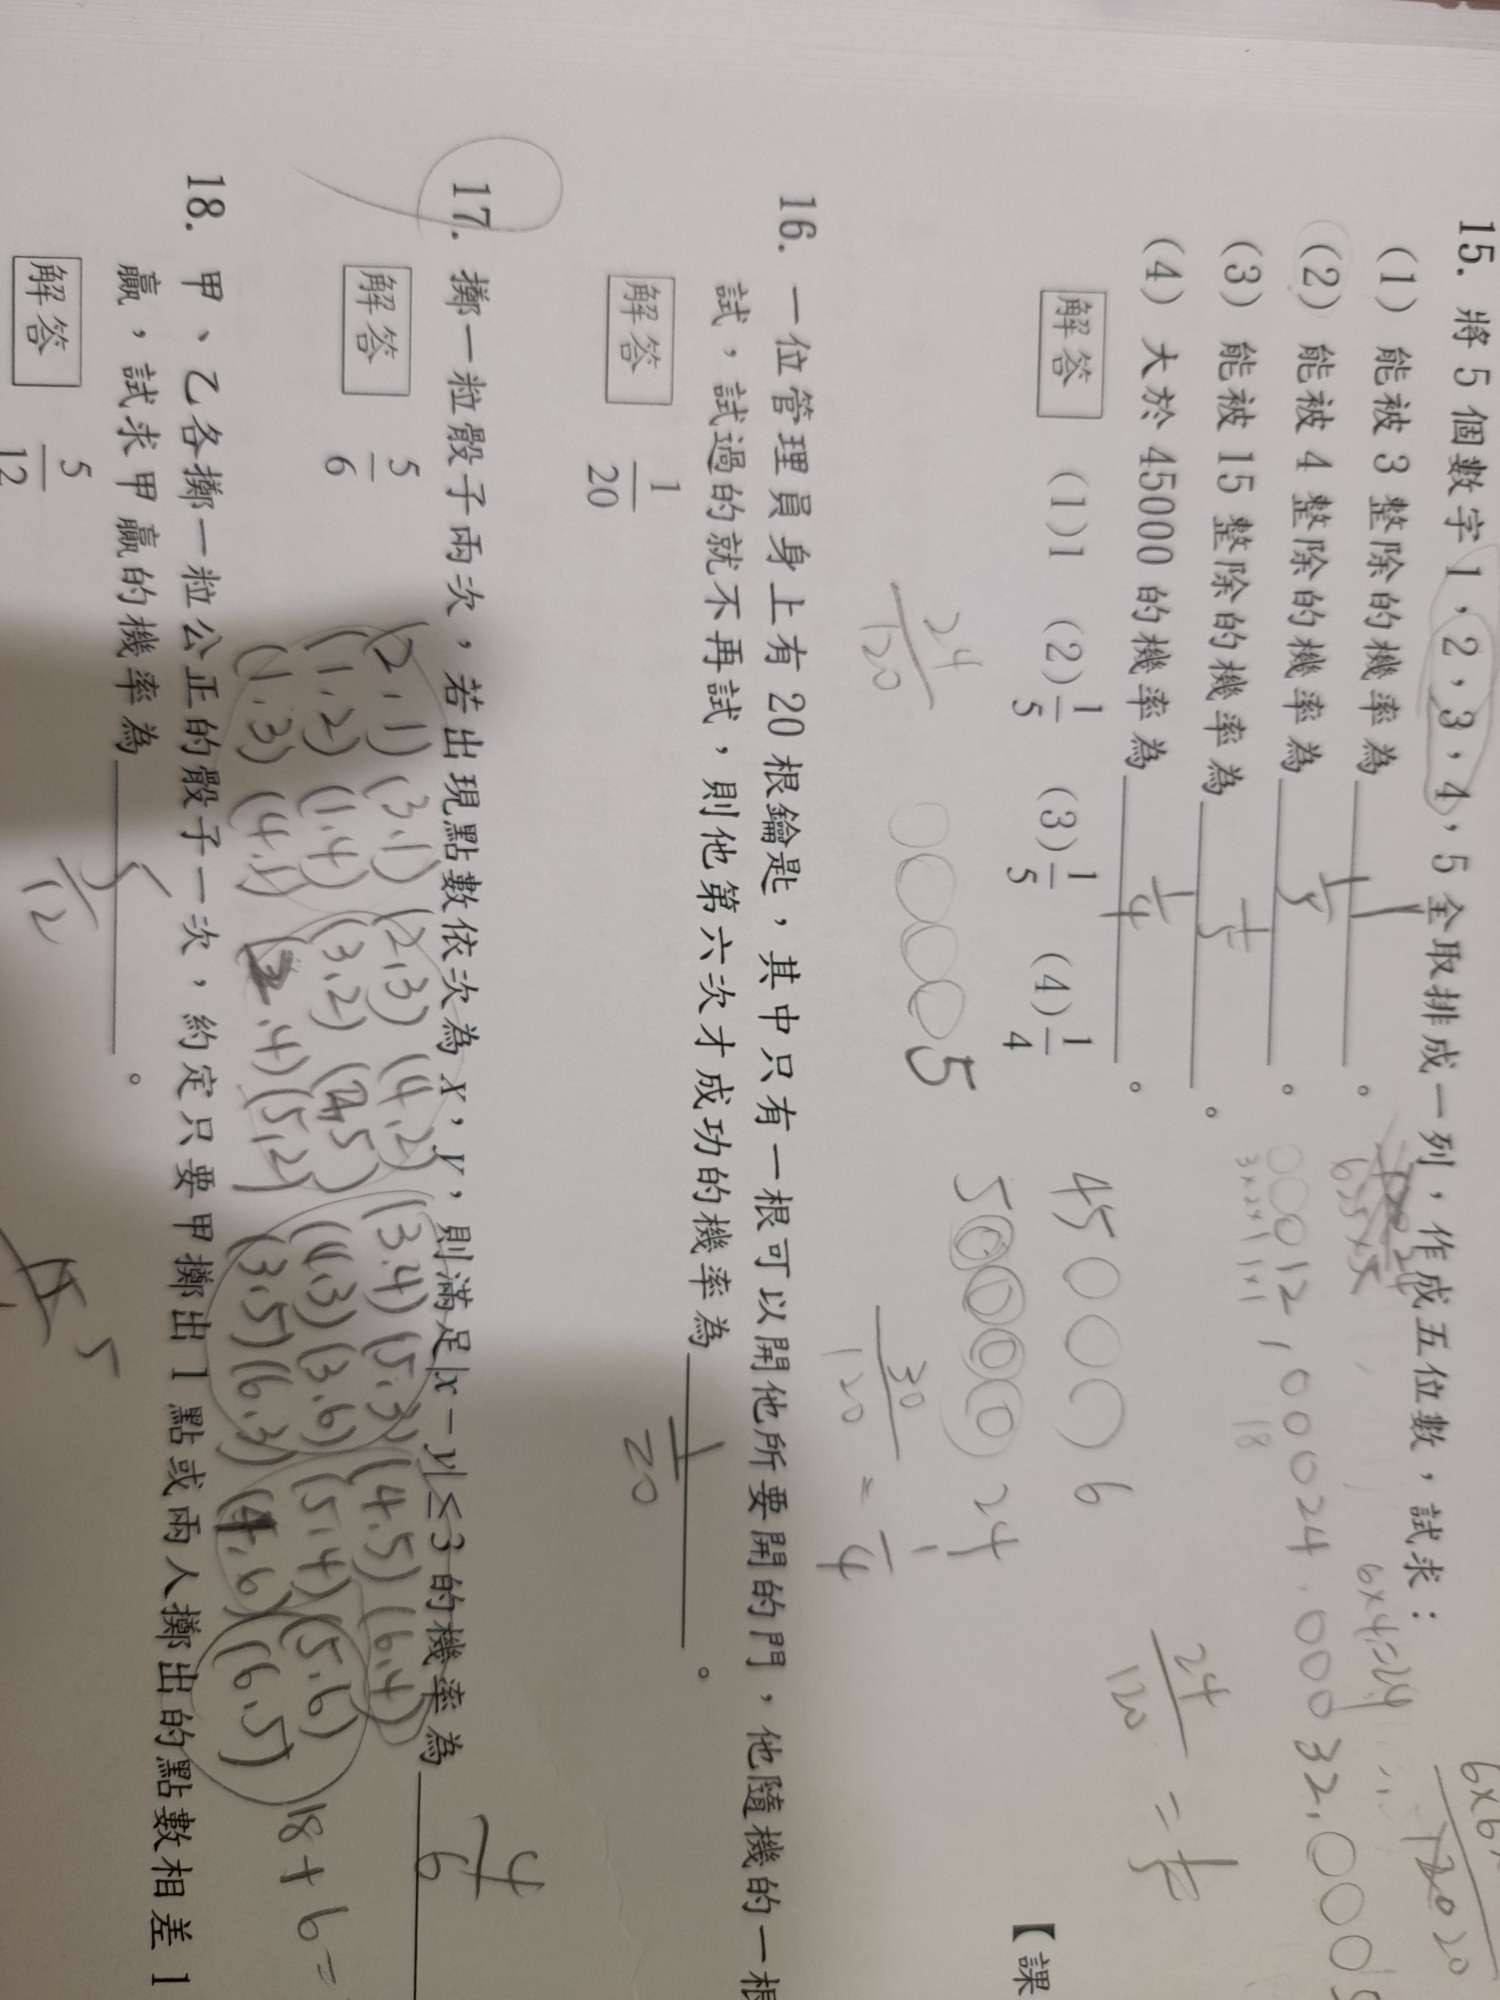 15. 將 5 個數字 1，2，3，4，5 全取排成一列，作成五位數，試求：
(1) 能被 3 整除的機率為 1 。
(2) 能被 4 整除的機率為 1/5 。
(3) 能被 15 整除的機率為 1/5 。
(4) 大於 45000 的機率為 1/4 。
00012, 00024, 00032, 000
3×2×1 1×1
18
6×4=24
24/120 = 1/5
解答 (1)1 (2)1/5 (3)1/5 (4)1/4
【課
45000 6
50000 24
24/120
00005
30/120 = 1/4
16. 一位管理員身上有 20 根鑰匙，其中只有一根可以開他所要開的門，他隨機的一根
試，試過的就不再試，則他第六次才成功的機率為 1/20 。
解答 1/20
17. 擲一粒骰子兩次，若出現點數依次為 x，y，則滿足|x－y|≤3 的機率為 4/6
(2,1) (3,1) (2,3) (4,2) (3,4) (5,3) (4,5) (6,4)
(1,2) (1,4) (3,2) (2,5) (4,3) (3,6) (5,4) (5,6)
(1,3) (4,1) (2,4) (5,2) (3,5) (6,3) (4,6) (6,5)
18+6=
解答 5/6
18. 甲、乙各擲一粒公正的骰子一次，約定只要甲擲出 1 點或兩人擲出的點數相差 1
贏，試求甲贏的機率為 5/12 。
解答 5/12